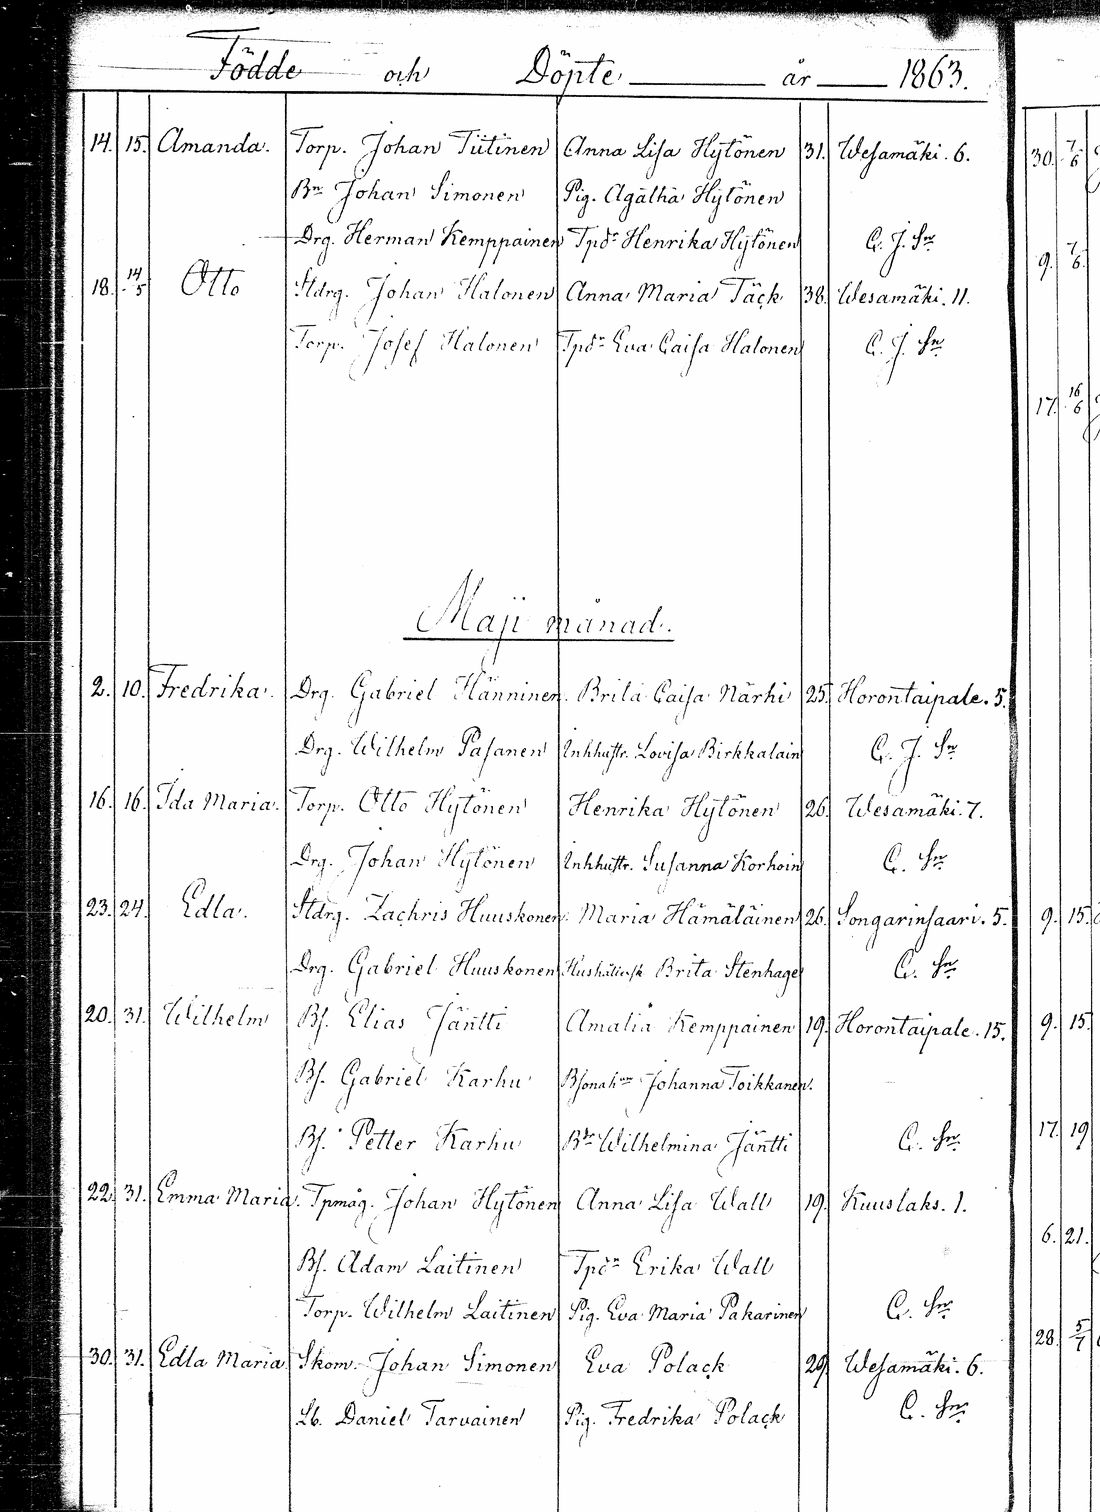 Födde och Döpte år 1863.
14. 15. Amanda. Torp. Johan Tiitinen Anna Lisa Hytönen 31. Wesamäki. 6.
Bn Johan Simonen Pig. Agatha Hytönen
Drg. Herman Kemppainen Tpdr Henrika Hytönen C. J. Sn
18. 14/5 Otto Stdrg. Johan Halonen Anna Maria Täck 38. Wesamäki. 11.
Torp. Josef Halonen Tpdr Eva Caisa Halonen C. J. Sn
Maji månad.
2. 10. Fredrika. Drg. Gabriel Hänninen. Brita Caisa Närhi 25. Horontaipale. 5.
Drg. Wilhelm Pasanen Inhhustr. Lovisa Birkkalain C. J. Sn
16. 16. Ida Maria. Torp. Otto Hytönen Henrika Hytönen 26. Wesamäki. 7.
Drg. Johan Hytönen Inhhustr. Susanna Korhoin C. Sn
23. 24. Edla. Stdrg. Zachris Huuskonen. Maria Hämäläinen 26. Songarinsaari. 5.
Drg. Gabriel Huuskonen Brita Stenhage C. Sn
20. 31. Wilhelm Bs. Elias Jäntti Amalia Kemppainen 19. Horontaipale. 15.
Bs. Gabriel Karhu Johanna Toikkanen.
Bs. Petter Karhu Bdr Wilhelmina Jäntti C. Sn
22. 31. Emma Maria. Tpmåg. Johan Hytönen Anna Lisa Wall 19. Kuuslaks. 1.
Bs. Adam Laitinen Tpdr Erika Wall
Torp. Wilhelm Laitinen Pig. Eva Maria Pakarinen C. Sn
30. 31. Edla Maria Skom. Johan Simonen Eva Polack 29. Wesamäki. 6.
Lb. Daniel Tarvainen Pig. Fredrika Polack C. Sn
30. 7/6
9. 7/6
17. 16/6
9. 15.
9. 15.
17. 19
6. 21.
28. 5/7